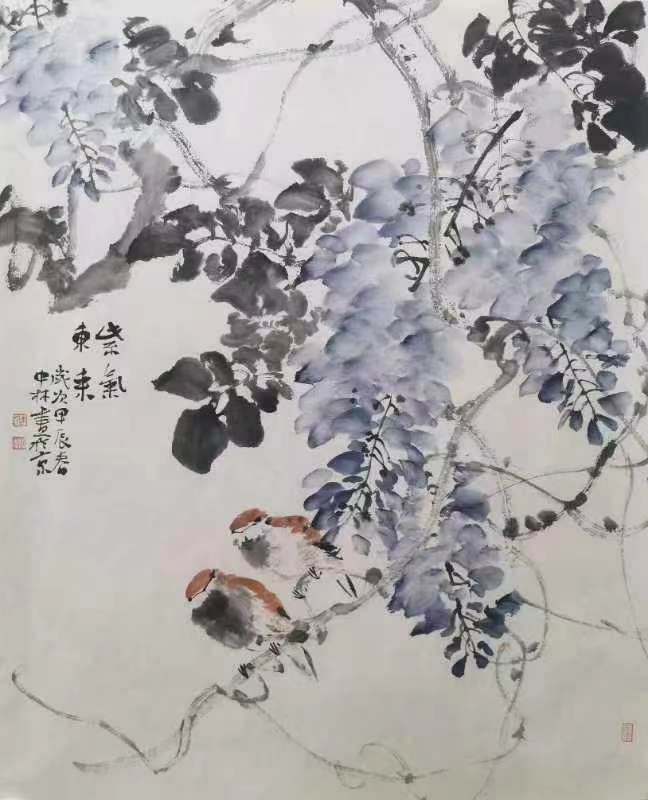 紫氣
東来
歲次甲辰春
中林書於京